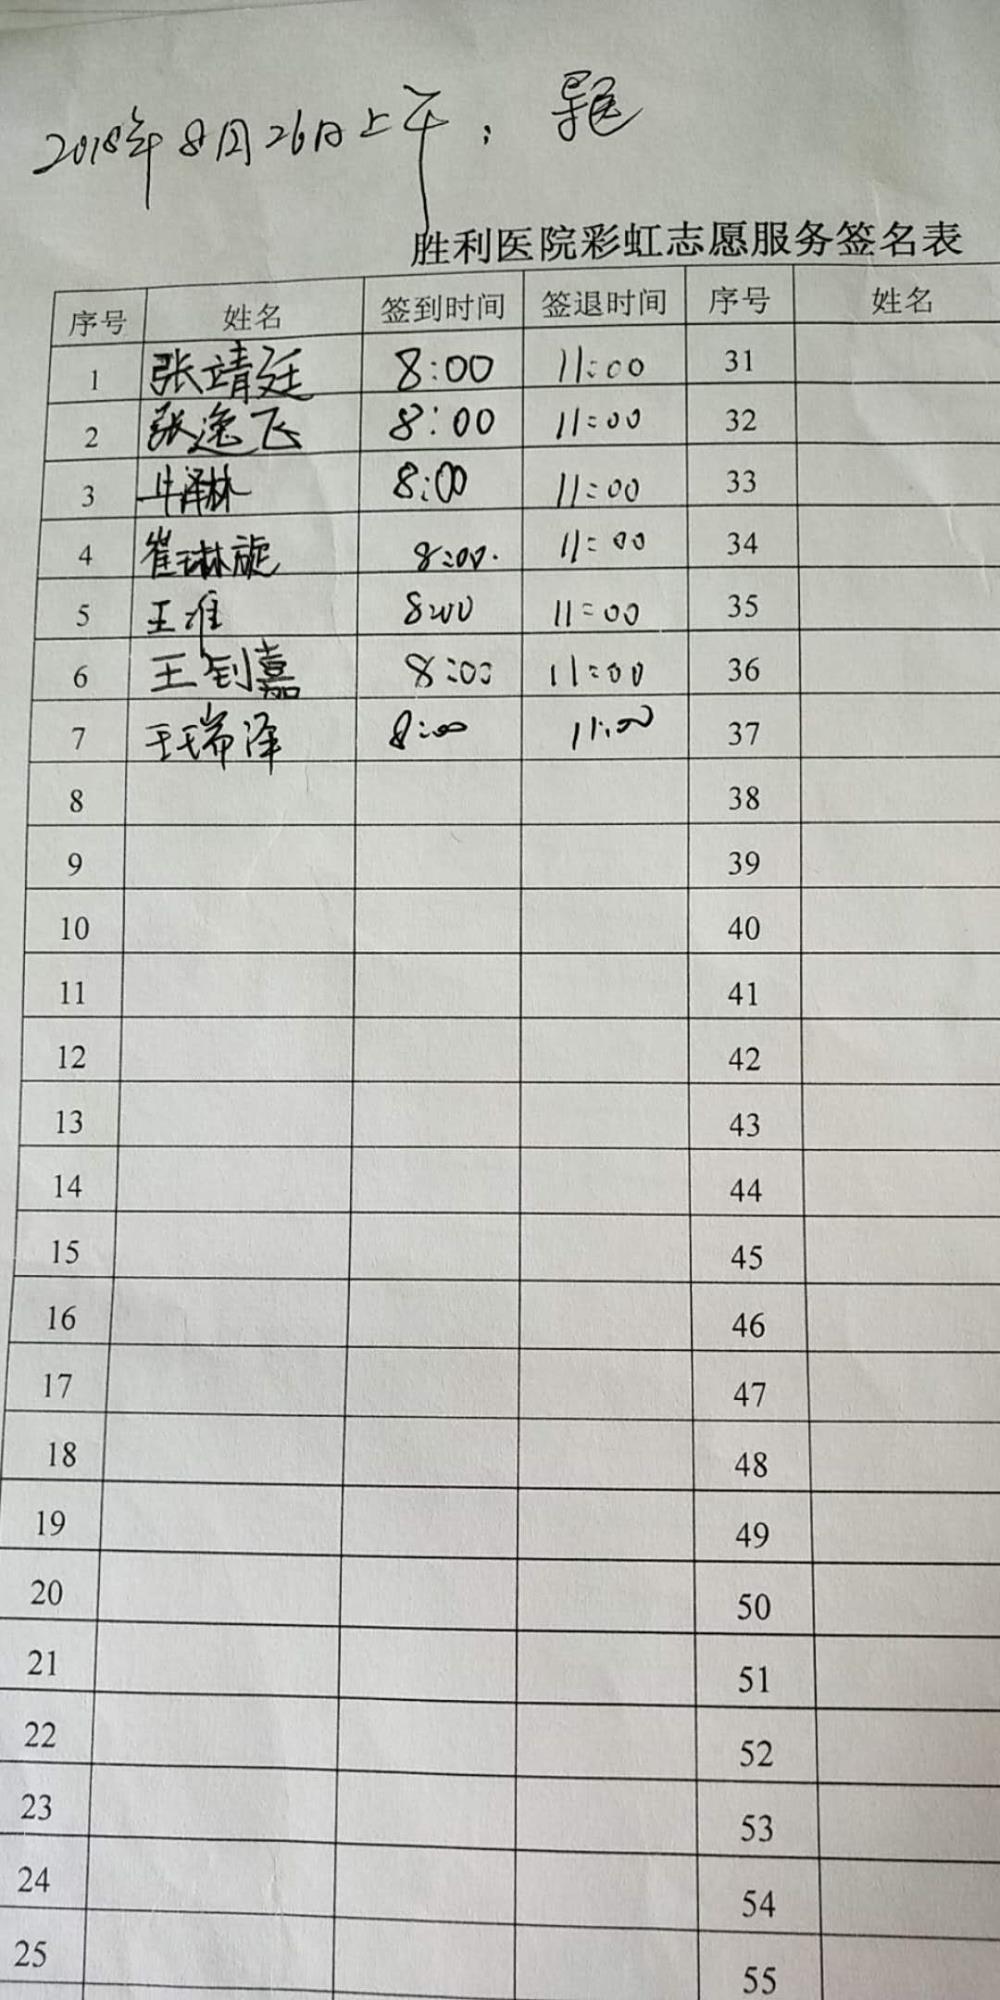 2018年8月26日上午：导医
胜利医院彩虹志愿服务签名表
序号 姓名 签到时间 签退时间 序号 姓名
1 张靖廷 8:00 11:00 31
2 张逸飞 8:00 11:00 32
3 牛泽林 8:00 11:00 33
4 崔琳旋 8:00. 11:00 34
5 王准 8:00 11:00 35
6 王钊嘉 8:00 11:00 36
7 王瑞泽 8:00 11:00 37
8 38
9 39
10 40
11 41
12 42
13 43
14 44
15 45
16 46
17 47
18 48
19 49
20 50
21 51
22 52
23 53
24 54
25 55